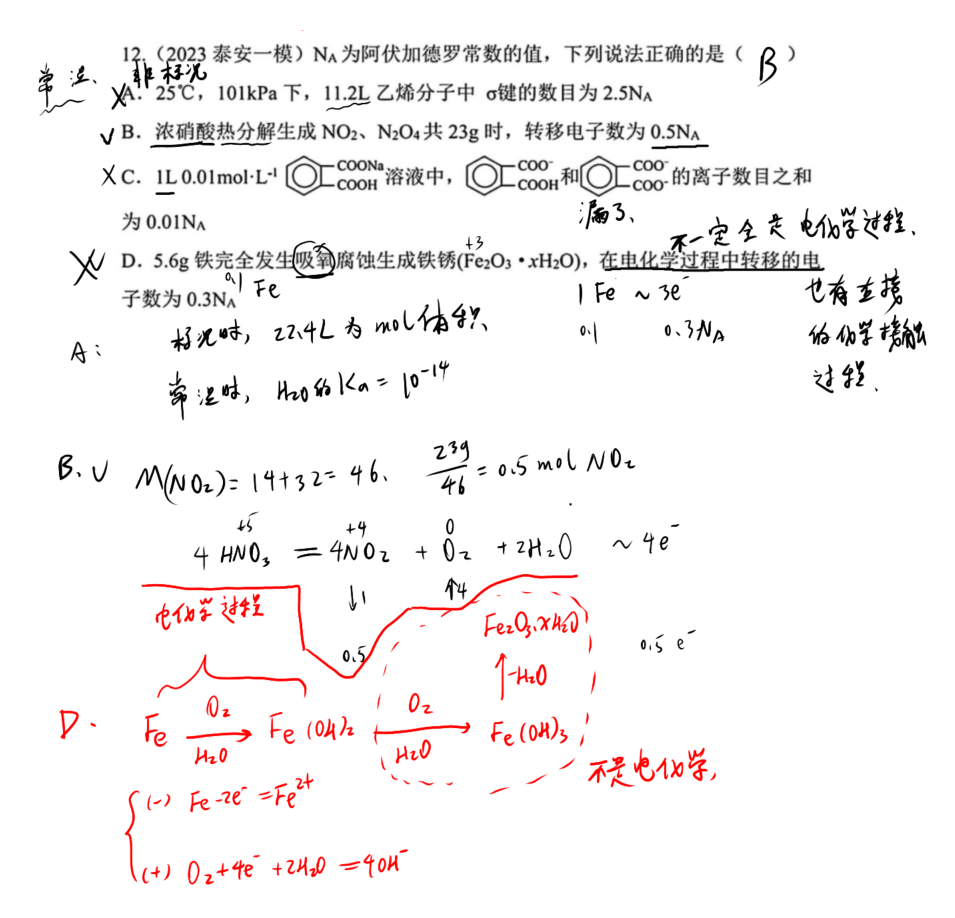 12.（2023 泰安一模）NA 为阿伏加德罗常数的值，下列说法正确的是（ B ）
常温、非标况
×A．25℃，101kPa 下，11.2L 乙烯分子中 σ键的数目为 2.5NA
√ B．浓硝酸热分解生成 NO₂、N₂O₄ 共 23g 时，转移电子数为 0.5NA
× C．1L 0.01mol·L⁻¹ COONa COOH 溶液中， COO⁻ COOH 和 COO⁻ COO⁻ 的离子数目之和
为 0.01NA
漏了、
不一定全是电化学过程.
+3
× D．5.6g 铁完全发生吸氧腐蚀生成铁锈(Fe₂O₃・xH₂O)，在电化学过程中转移的电
子数为 0.3NA
0.1 Fe
1 Fe ~ 3e⁻
0.1 0.3NA
也有直接
的化学接触
过程.
A： 标况时，22.4L 为 mol 体积、
常温时，H₂O的Ka = 10⁻¹⁴
B、√ M(NO₂)= 14+32= 46、 23g/46 = 0.5 mol NO₂
+5 +4 0
4 HNO₃ = 4NO₂ + O₂ + 2H₂O ~ 4e⁻
↓1 ↑4
0.5 0.5 e⁻
电化学过程
Fe₂O₃.xH₂O
↑-H₂O
D. Fe O₂ H₂O → Fe(OH)₂ O₂ H₂O → Fe(OH)₃
不是电化学，
(-) Fe-2e⁻ =Fe²⁺
(+) O₂+4e⁻ +2H₂O =4OH⁻